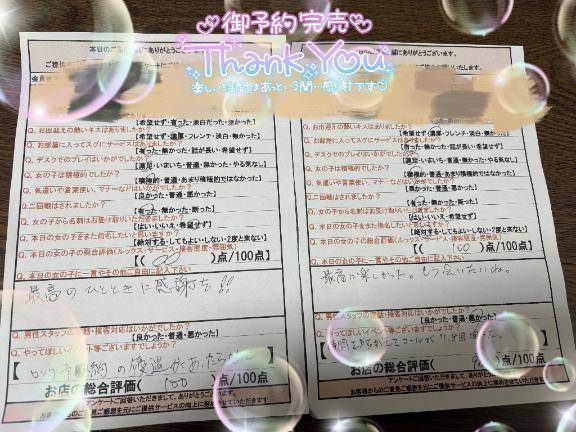 御予約完売
Thank You
楽しい時間はあっという間…感謝です♡
本日のご
にありがとうございます。
Q. お出迎えの熱いキスはありましたか？
【希望せず・濃厚・フレンチ・淡白・無かった】
Q. お部屋に入ってすぐにサービスはありましたか？
【有った・無かった・話が長い・希望せず】
Q. デスクでのプレイはいかがでしたか？
【満足・いまいち・普通・無かった・やる気なし】
Q. 女の子は積極的でしたか？
【積極的・普通・あまり積極的ではなかった】
Q. 気遣いや言葉使い、マナーなどはいかがでしたか？
【良かった・普通・悪かった】
Q. 二回戦はされましたか？
【有った・無かった・断った】
Q. 女の子から名刺はお受け取りいただきましたか？
【はい・いいえ・希望せず】
Q. 本日の女の子をまた指名したいと思いますか？
【絶対する・してもよい・しない・2度と来ない】
Q. 本日の女の子の総合評価(ルックス・サービス・接客態度・雰囲気)
【( 100 )点/100点】
Q. 本日の女の子に一言やその他ご自由に記入下さい
最高のひとときに感謝を!!
Q. 男性スタッフの電話・接客対応はいかがでしたか？
【良かった・普通・悪かった】
Q. やってほしいイベント等ございますでしょうか？
【ロング予約の優遇があったら
お店の総合評価( 100 )点/100点
アンケートご回答いただきまして、ありがとうございます。
Q. お出迎えの熱いキスはありましたか？
【希望せず・濃厚・フレンチ・淡白・無かった】
Q. お部屋に入ってすぐにサービスはありましたか？
【有った・無かった・話が長い・希望せず】
Q. デスクでのプレイはいかがでしたか？
【満足・いまいち・普通・無かった・やる気なし】
Q. 女の子は積極的でしたか？
【積極的・普通・あまり積極的ではなかった】
Q. 気遣いや言葉使い、マナーなどはいかがでしたか？
【良かった・普通・悪かった】
Q. 二回戦はされましたか？
【有った・無かった・断った】
Q. 女の子から名刺はお受け取り
【はい・いいえ・希望せず】
Q. 本日の女の子をまた指名したいと思いますか？
【絶対する・してもよい・しない・2度と来ない】
Q. 本日の女の子の総合評価(ルックス・サービス・接客態度・雰囲気)
【( 100 )点/100点】
Q. 本日の女の子に一言やその他ご自由に記入下さい
最高に楽しかった。もう会いたいね。
Q. 男性スタッフの電話・接客対応はいかがでしたか？
【良かった・普通・悪かった】
ってほしいイベント等ございますでしょうか？
お店の総合評価(
)点/100点
アンケートご回答いただきまして、ありがとうございます。
お客様からのご意見ご感想を元にご提供サービスの向上に努めさせていただきます